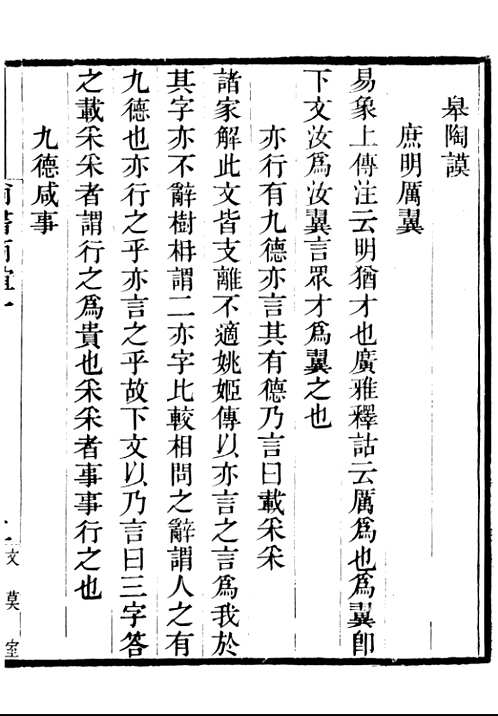 皋陶謨
庶明厲翼
易象上傳注云明猶才也廣雅釋詁云厲爲也爲翼卽
下文汝爲汝翼言眾才爲翼之也
亦行有九德亦言其有德乃言曰載采采
諸家解此文皆支離不適姚姬傳以亦言之言爲我於
其字亦不辭樹枏謂二亦字比較相問之辭謂人之有
九德也亦行之乎亦言之乎故下文以乃言曰三字答
之載采采者謂行之爲貴也采采者事事行之也
九德咸事
尚書商誼一
文莫室